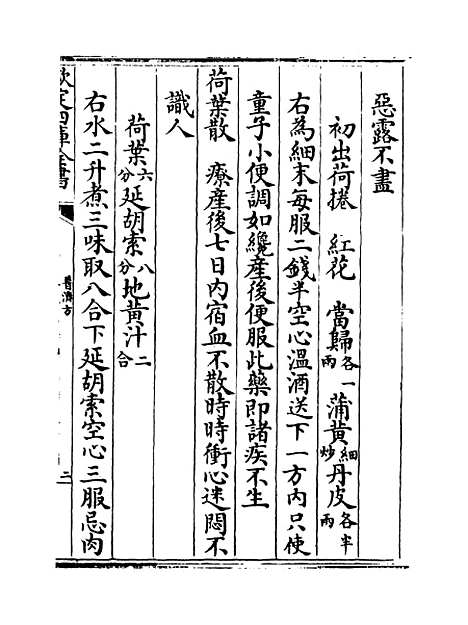 惡露不盡
初出荷捲　紅花　當歸各一兩　蒲黃細炒　丹皮各半兩
右為細末每服二錢半空心溫酒送下一方內只使
童子小便調如纔產後便服此藥即諸疾不生
荷葉散　療產後七日內宿血不散時時衝心迷悶不
識人
荷葉六分　延胡索八分　地黃汁二合
右水二升煮三味取八合下延胡索空心三服忌肉
欽定四庫全書
普濟方
二